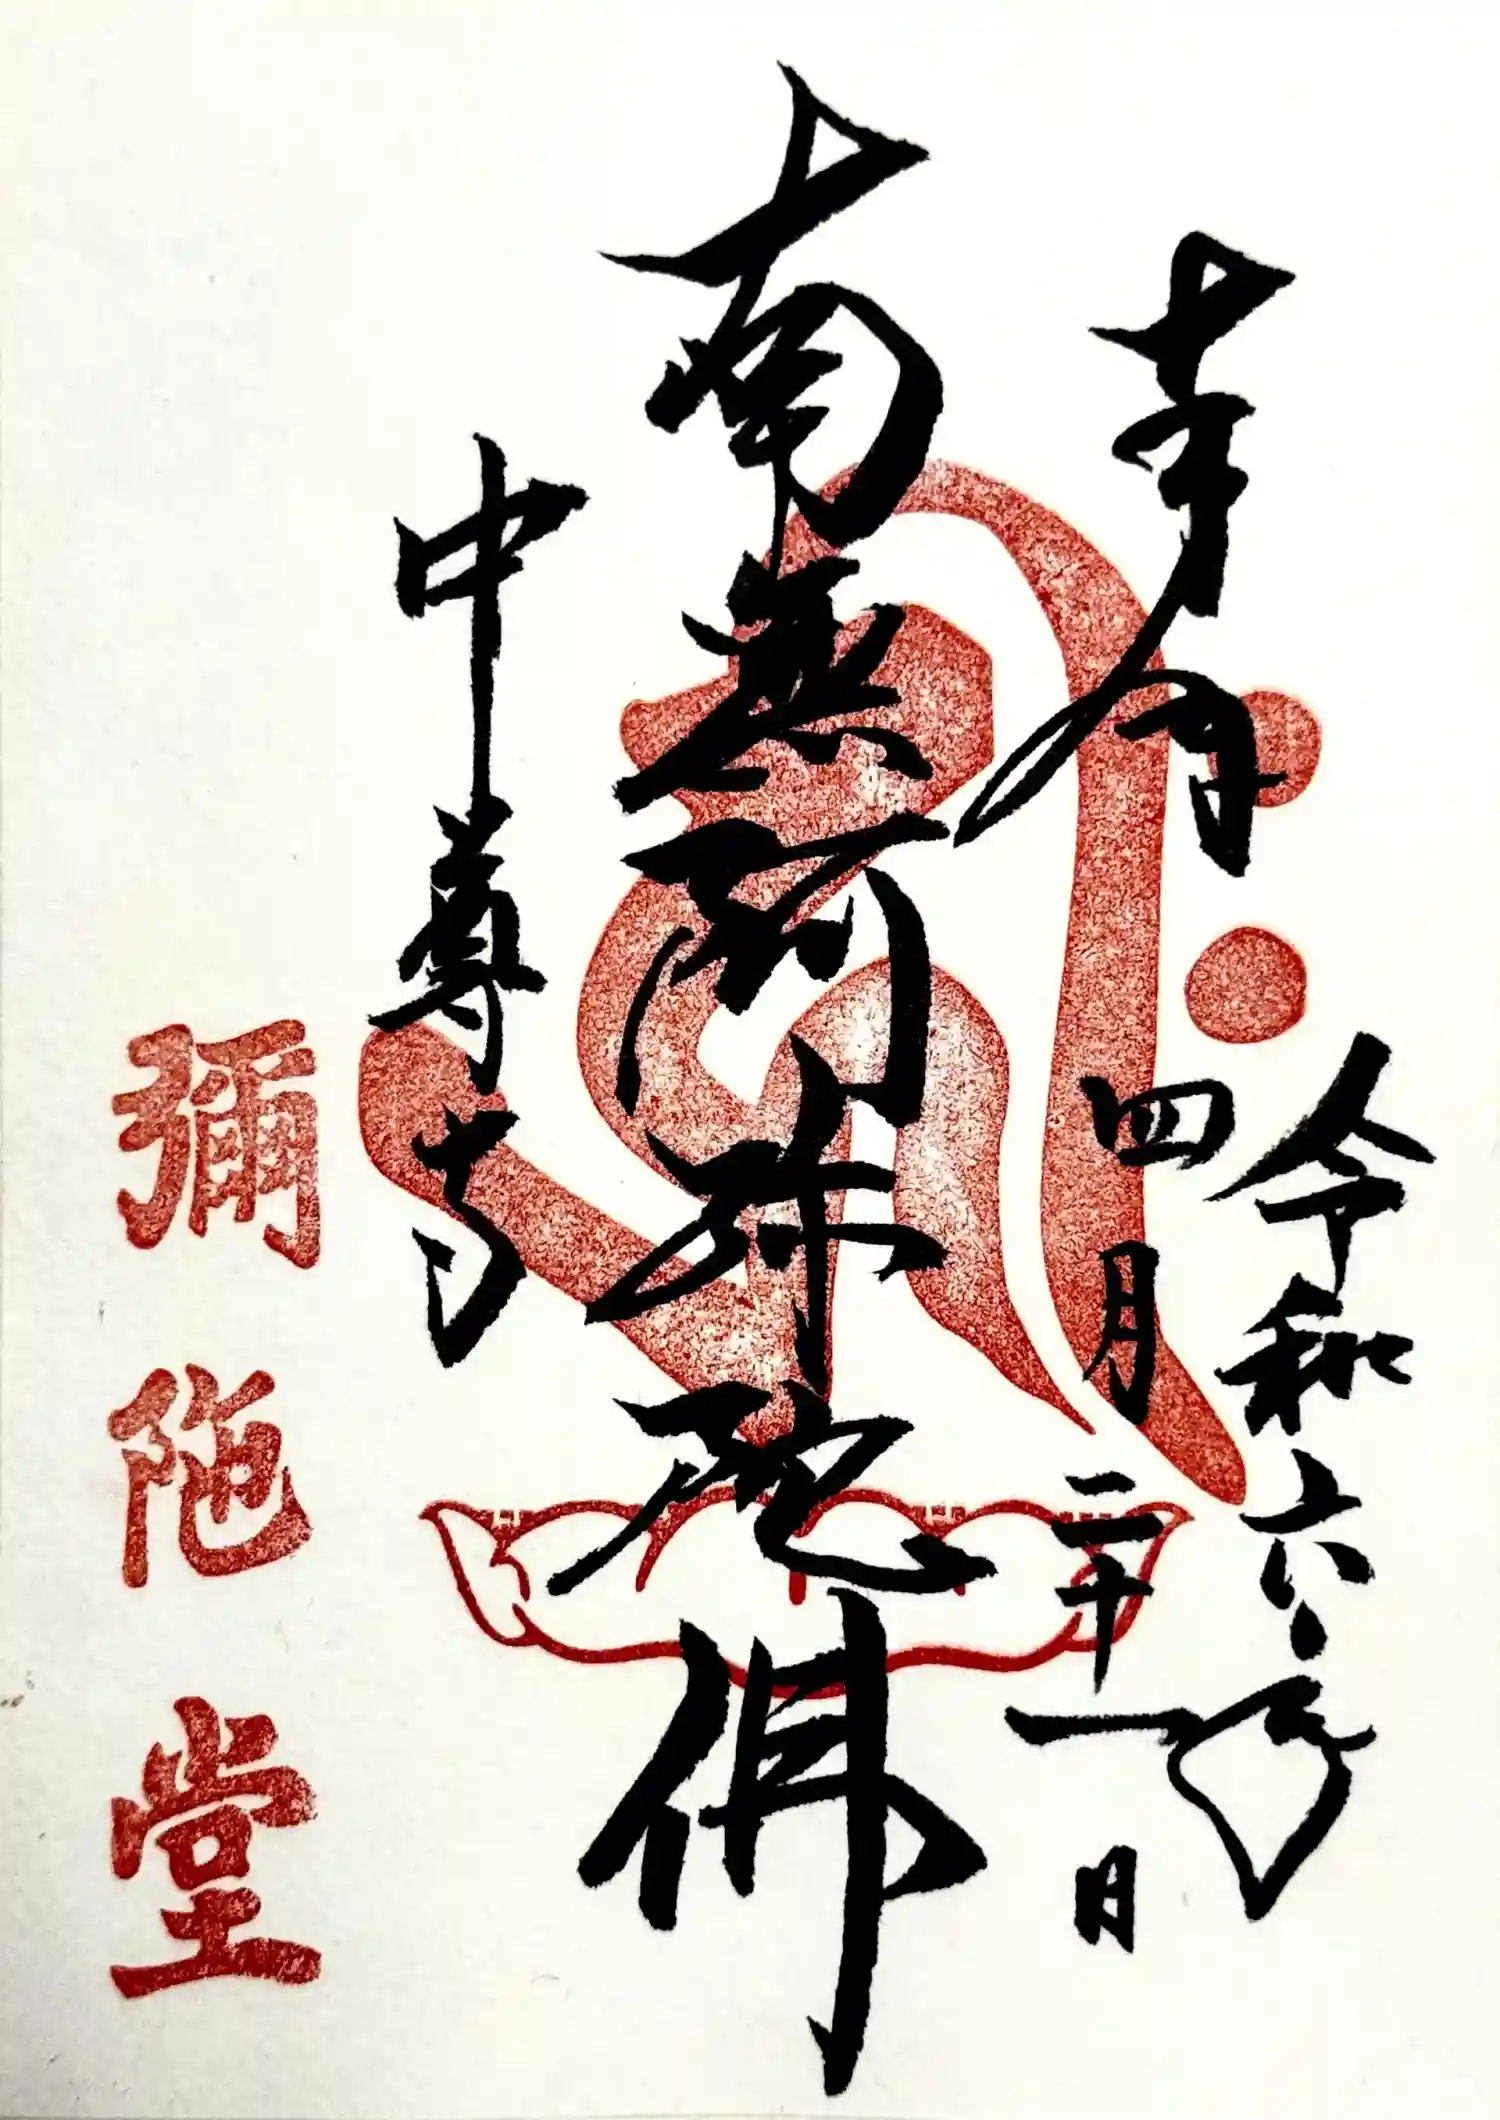 奉拝
令和六年
四月二十一日
南無阿弥陀佛
中尊寺
彌陁堂